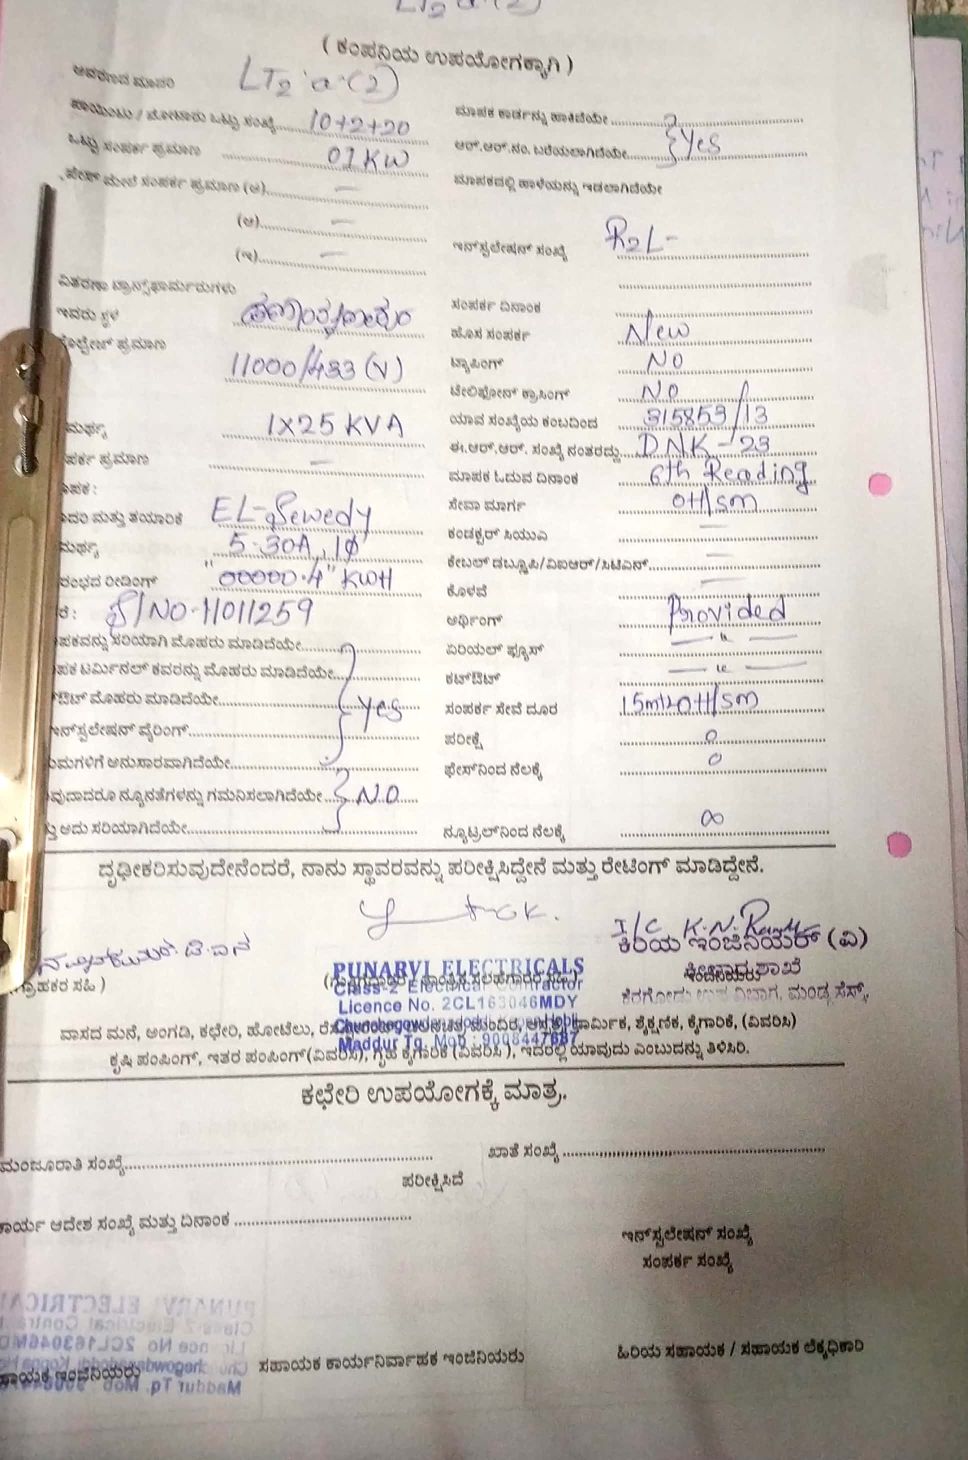 LT2 a(2)
( ಕಂಪನಿಯ ಉಪಯೋಗಕ್ಕಾಗಿ )
ಆವರಣದ ಮಾದರಿ LT2 a(2)
ಪಾಯಿಂಟು / ಮೋಟಾರು ಒಟ್ಟು ಸಂಖ್ಯೆ 10+2+20
ಒಟ್ಟು ಸಂಪರ್ಕ ಪ್ರಮಾಣ 01KW
ಫೇಸ್ ಮೇಲೆ ಸಂಪರ್ಕ ಪ್ರಮಾಣ (ಅ) —
(ಆ) —
(ಇ) —
ವಿತರಣಾ ಟ್ರಾನ್ಸ್‌ಫಾರ್ಮರುಗಳು
ಇವರು ಸ್ಥಳ
ವೋಲ್ಟೇಜ್ ಪ್ರಮಾಣ
11000/433 (V)
ಮರ್ಥ್ಯ 1X25 KVA
ಪರ್ಕ ಪ್ರಮಾಣ —
ಾಪಕ :
ಾದರಿ ಮತ್ತು ತಯಾರಿಕೆ EL-Sewedy
ಮರ್ಥ್ಯ 5-30A, 1Ø
ರಂಭದ ರೀಡಿಂಗ್ "00000.4" KWH
ಕೆ : S/NO-11011259
ಪಕವನ್ನು ಸರಿಯಾಗಿ ಮೊಹರು ಮಾಡಿದೆಯೇ
ಪಕ ಟರ್ಮಿನಲ್ ಕವರನ್ನು ಮೊಹರು ಮಾಡಿದೆಯೇ
ಔಟ್ ಮೊಹರು ಮಾಡಿದೆಯೇ Yes
ಇನ್‌ಸ್ಟಲೇಷನ್ ವೈರಿಂಗ್
ುಮಗಳಿಗೆ ಅನುಸಾರವಾಗಿದೆಯೇ
ವುದಾದರೂ ನ್ಯೂನತೆಗಳನ್ನು ಗಮನಿಸಲಾಗಿದೆಯೇ NO
ತ್ತು ಅದು ಸರಿಯಾಗಿದೆಯೇ
ಮಾಪಕ ಕಾರ್ಡನ್ನು ಹಾಕಿದೆಯೇ
ಆರ್.ಆರ್.ನಂ. ಬರೆಯಲಾಗಿದೆಯೇ Yes
ಮಾಪಕದಲ್ಲಿ ಹಾಳೆಯನ್ನು ಇಡಲಾಗಿದೆಯೇ
ಇನ್‌ಸ್ಟಲೇಷನ್ ಸಂಖ್ಯೆ R2L-
ಸಂಪರ್ಕ ದಿನಾಂಕ
ಹೊಸ ಸಂಪರ್ಕ New
ಟ್ಯಾಪಿಂಗ್ NO
ಟೇಲಿಫೋನ್ ಕ್ರಾಸಿಂಗ್ NO
ಯಾವ ಸಂಖ್ಯೆಯ ಕಂಬದಿಂದ 315853/13
ಈ.ಆರ್.ಆರ್. ಸಂಖ್ಯೆ ನಂತರದ್ದು DNK-23
ಮಾಪಕ ಓದುವ ದಿನಾಂಕ 6th Reading
ಸೇವಾ ಮಾರ್ಗ OH/SM
ಕಂಡಕ್ಟರ್ ಸಿಯುಎ —
ಕೇಬಲ್ ಡಬ್ಲ್ಯೂಪಿ/ವಿಐಆರ್/ಸಿಟಿಎಸ್ —
ಕೊಳವೆ —
ಅರ್ಥಿಂಗ್ Provided
ಏರಿಯಲ್ ಫ್ಯೂಸ್ — " —
ಕಟ್‌ಔಟ್ — " —
ಸಂಪರ್ಕ ಸೇವೆ ದೂರ 15mtr OH/SM
ಪರೀಕ್ಷೆ 0
ಫೇಸ್‌ನಿಂದ ನೆಲಕ್ಕೆ 0
ನ್ಯೂಟ್ರಲ್‌ನಿಂದ ನೆಲಕ್ಕೆ ∞
ದೃಢೀಕರಿಸುವುದೇನೆಂದರೆ, ನಾನು ಸ್ಥಾವರವನ್ನು ಪರೀಕ್ಷಿಸಿದ್ದೇನೆ ಮತ್ತು ರೇಟಿಂಗ್ ಮಾಡಿದ್ದೇನೆ.
I/C K.N.
ಕಿರಿಯ ಇಂಜಿನಿಯರ್ (ವಿ)
ಶಾಖೆ
ಕೆರಗೋಡು ಉಪ ವಿಭಾಗ, ಮಂಡ್ಯ ಸೆಸ್ಕ್,
(ಗ್ರಾಹಕರ ಸಹಿ )
PUNARVI ELECTRICALS
Class-2 Electrical Contractor
Licence No. 2CL163046MDY
Maddur Tq. Mob : 9008447687
ವಾಸದ ಮನೆ, ಅಂಗಡಿ, ಕಛೇರಿ, ಹೋಟೆಲು, ಮಂದಿರ, ಧಾರ್ಮಿಕ, ಶೈಕ್ಷಣಿಕ, ಕೈಗಾರಿಕೆ, (ವಿವರಿಸಿ)
ಕೃಷಿ ಪಂಪಿಂಗ್, ಇತರ ಪಂಪಿಂಗ್(ವಿವರಿಸಿ), ಗೃಹ ಕೈಗಾರಿಕೆ (ವಿವರಿಸಿ ), ಇದರಲ್ಲಿ ಯಾವುದು ಎಂಬುದನ್ನು ತಿಳಿಸಿರಿ.
ಕಛೇರಿ ಉಪಯೋಗಕ್ಕೆ ಮಾತ್ರ.
ಮಂಜೂರಾತಿ ಸಂಖ್ಯೆ
ಖಾತೆ ಸಂಖ್ಯೆ
ಪರೀಕ್ಷಿಸಿದೆ
ಕಾರ್ಯ ಆದೇಶ ಸಂಖ್ಯೆ ಮತ್ತು ದಿನಾಂಕ
ಇನ್‌ಸ್ಟಲೇಷನ್ ಸಂಖ್ಯೆ
ಸಂಪರ್ಕ ಸಂಖ್ಯೆ
ಸಹಾಯಕ ಇಂಜಿನಿಯರು
ಸಹಾಯಕ ಕಾರ್ಯನಿರ್ವಾಹಕ ಇಂಜಿನಿಯರು
ಹಿರಿಯ ಸಹಾಯಕ / ಸಹಾಯಕ ಲೆಕ್ಕಾಧಿಕಾರಿ